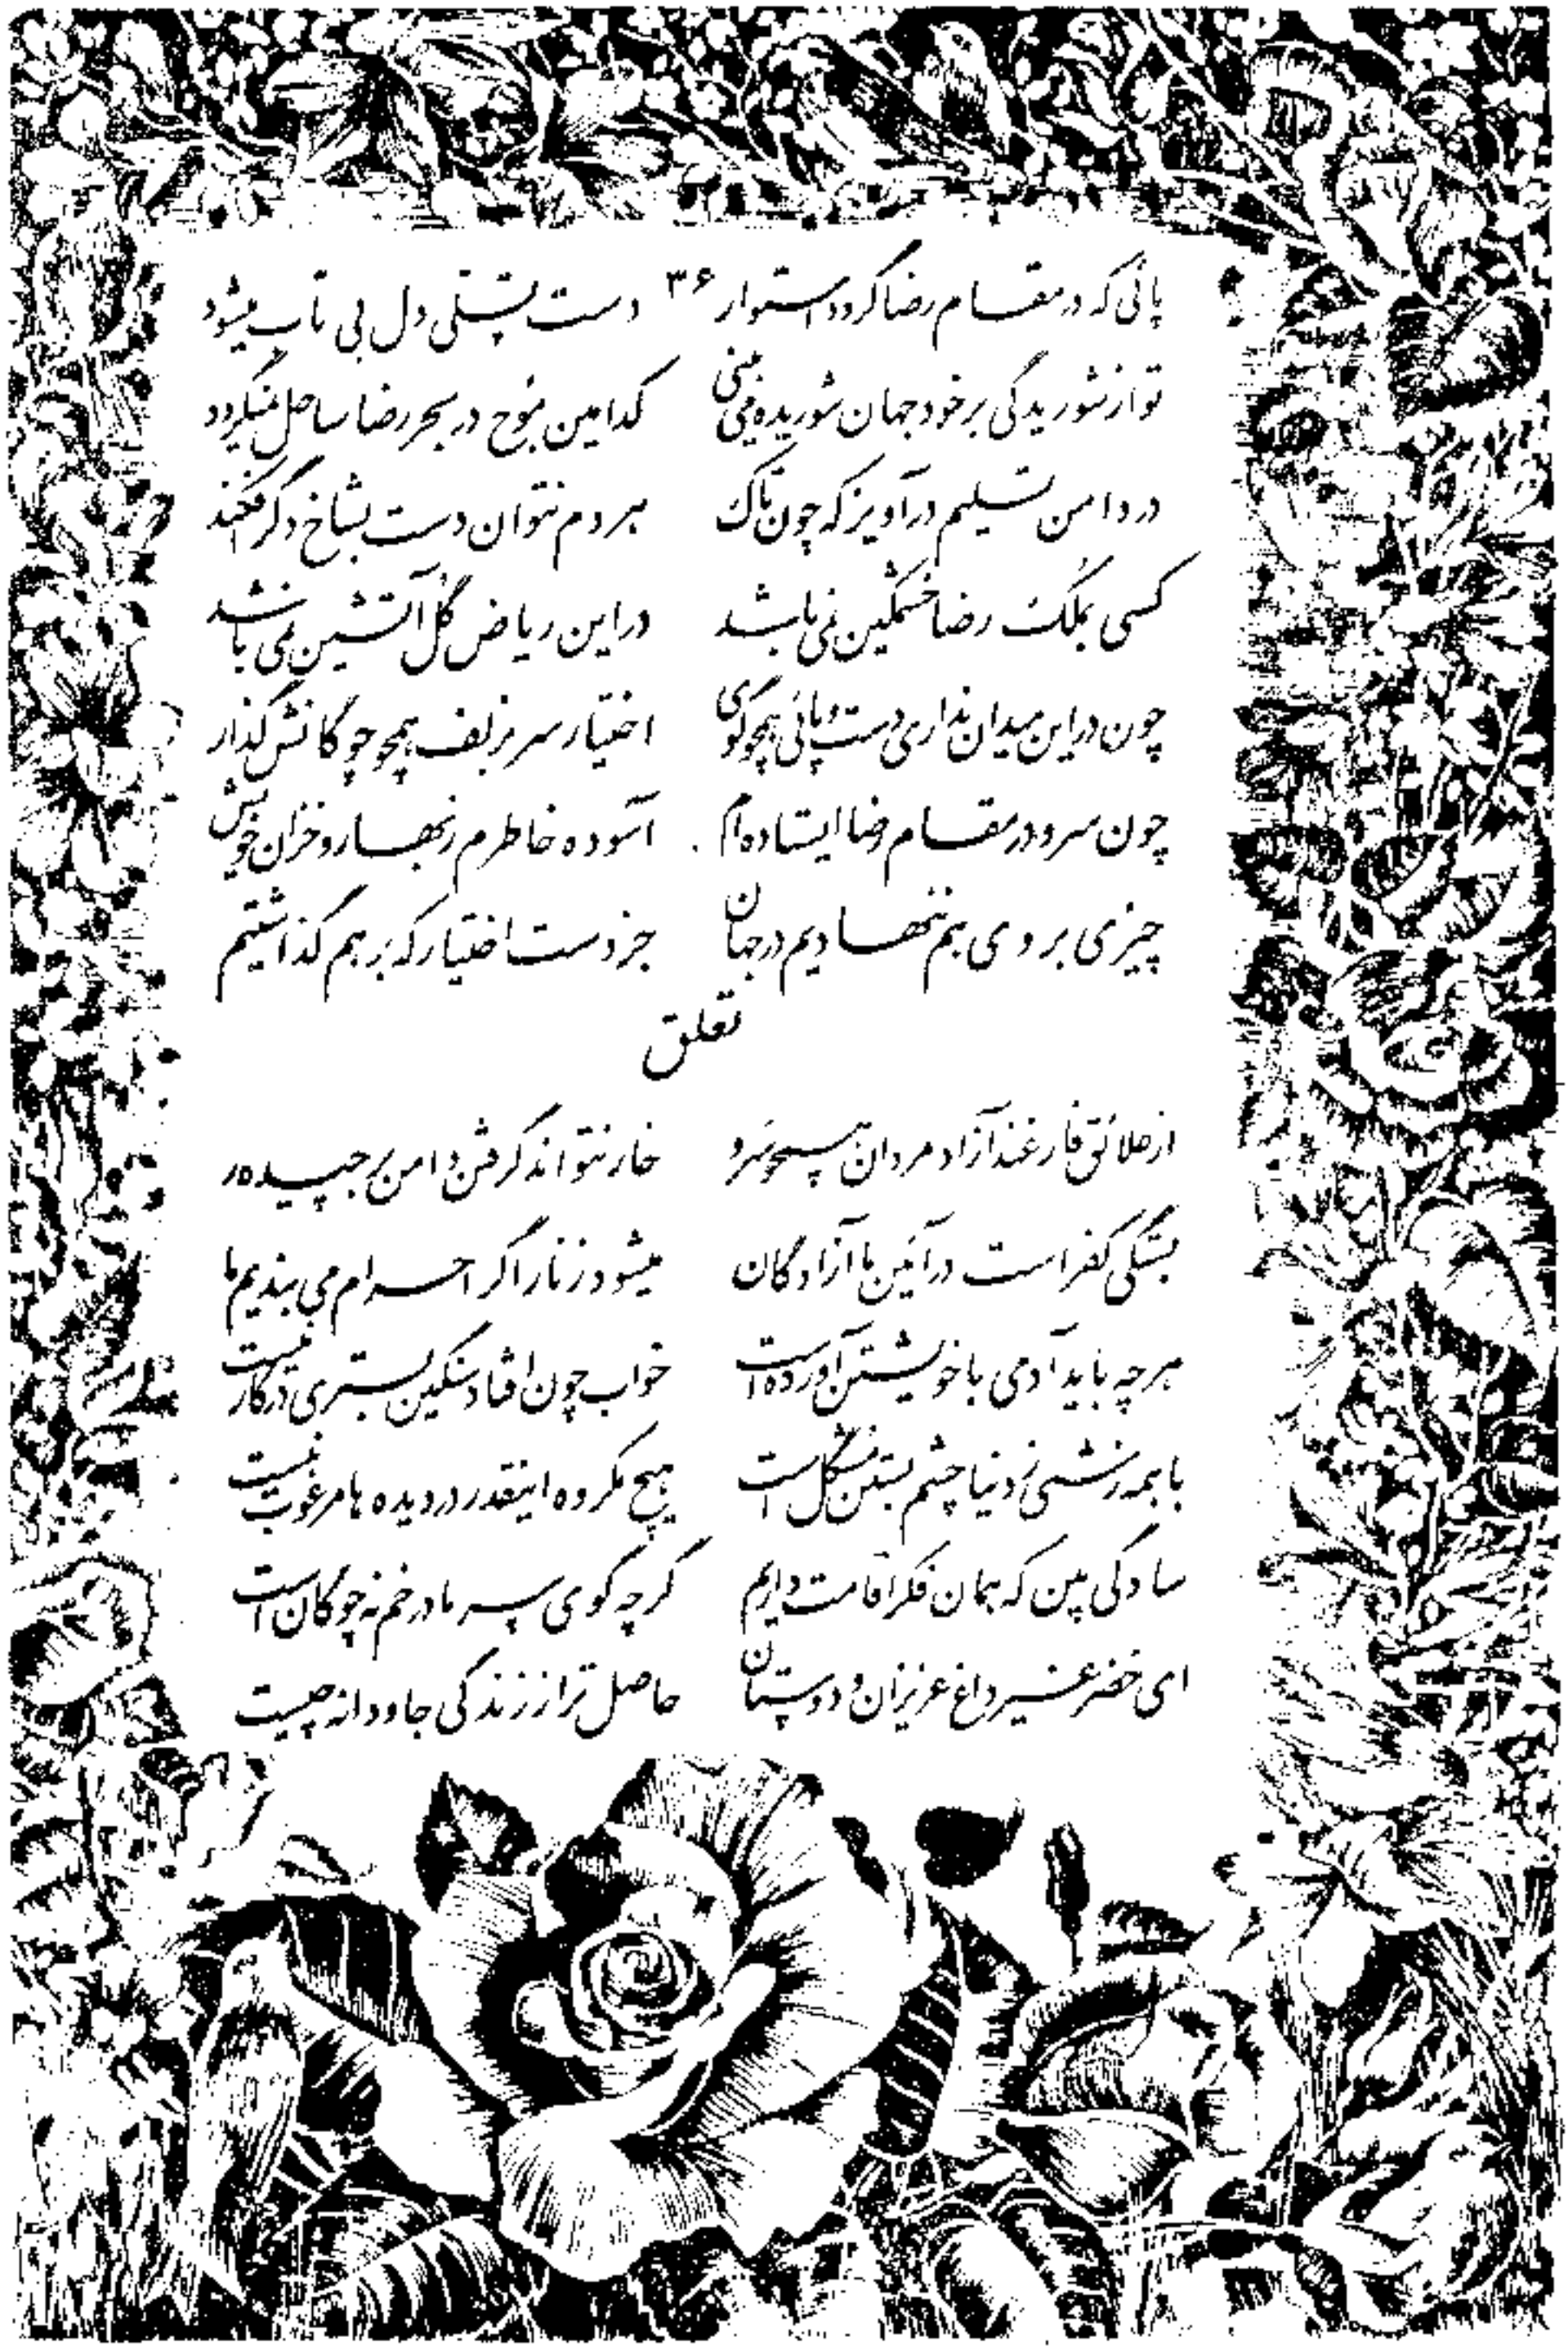 پائی که در مقام رضا گردد استوار ۳۶ دست تسلی دل بی تاب میشود
تو از شوریدگی بر خود جهان شوریده می بینی کدامین موج در بحر رضا ساحل نمیگردد
در دامن تسلیم درآویز که چون تاک هر دم نتوان دست بشاخ دگر افکند
کسی بملک رضا خشمگین نمی باشد در این ریاض گل آتشین نمی باشد
چون در این میدان نداری دست و پائی همچو گوی اختیار سر بزلف همچو چوگانش گذار
چون سرو در مقام رضا ایستاده ام آسوده خاطرم ز بهار و خزان خویش
چیزی بروی هم ننهادیم در جهان جز دست اختیار که بر هم گذاشتیم
تعلق
از علائق فارغند آزاد مردان همچو سرو خار نتواند گرفتن دامن برچیده را
بستگی کفر است در آئین ما آزادگان میشود زنار اگر احرام می بندیم ما
هر چه باید آدمی با خویشتن آورده است خواب چون افتاد سنگین بستری در کار نیست
با همه زشتی ز دنیا چشم بستن مشکل است هیچ مکروه اینقدر در دیده ها مرغوب نیست
سادگی بین که همان فکر اقامت داریم گر چه گوی سر ما در خم نه چوگان است
ای خضر غیر داغ عزیزان و دوستان حاصل ترا ز زندگی جاودانه چیست